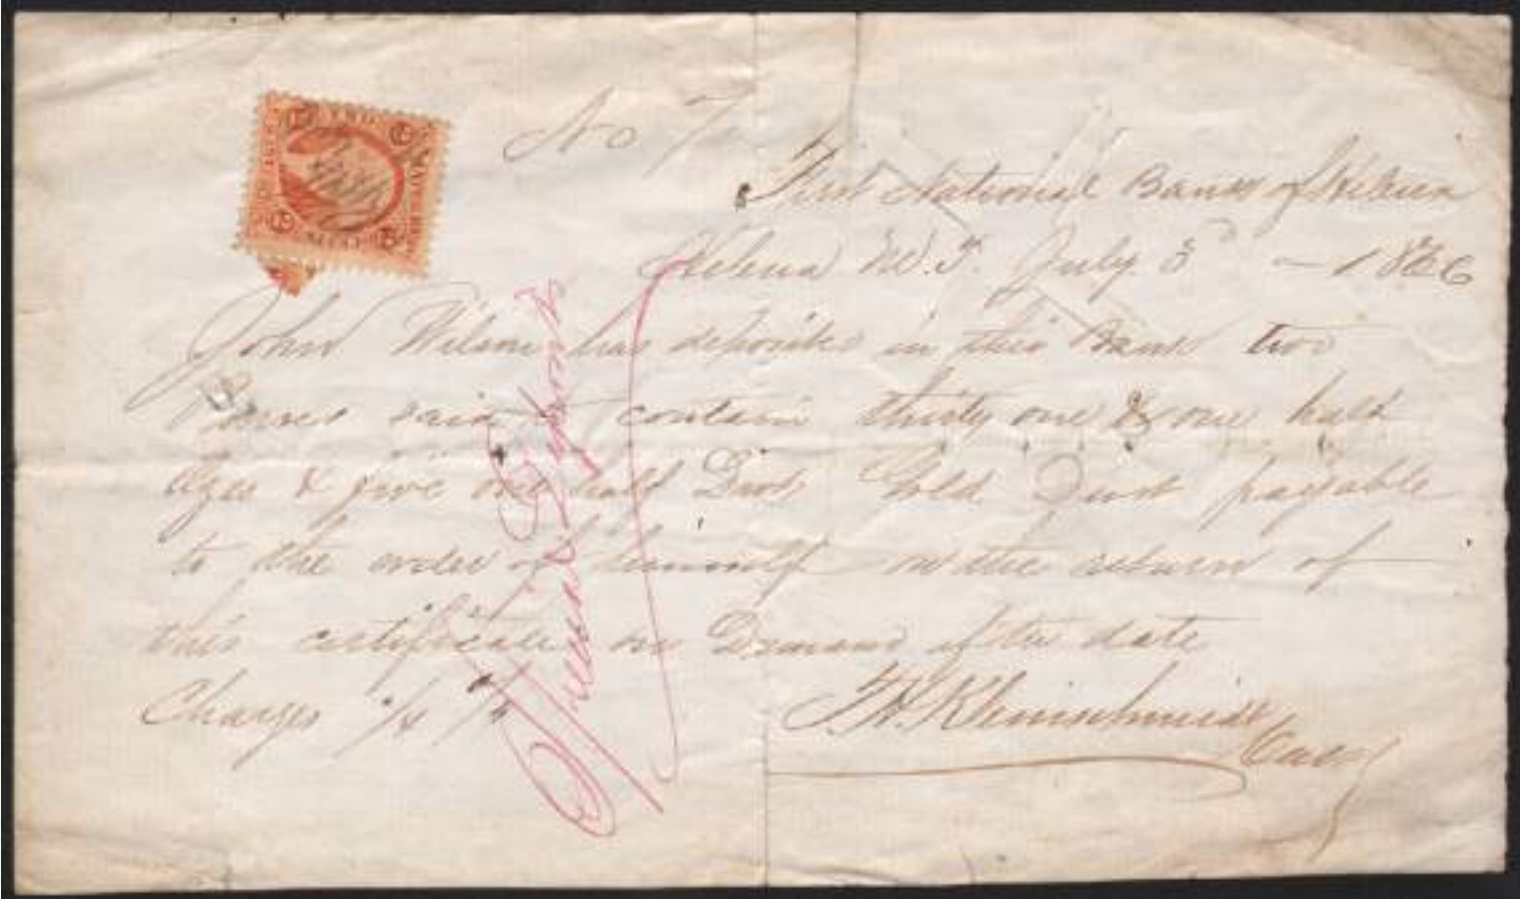 No 7
First National Bank of Helena
Helena M.T. July 3d — 1866
John Wilson has deposited in this Bank two
Purses said to contain thirty one & one half
Ozs & five one half Dwts Gold Dust payable
to the order of himself on the return of
this certificate on Demand after date
Charges 1/4 %
T. H. Kleinschmidt
Cash
TWO